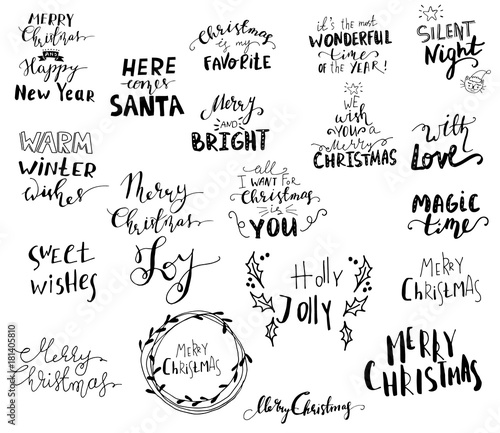 MERRY
Christmas
AND
Happy
NEW YEAR
HERE
comes
SANTA
Christmas
is my
FAVORITE
it's the most
WONDERFUL
time
OF THE YEAR!
SILENT
Night
Merry
AND
BRIGHT
WE
wish
YOU a
Merry
CHRISTMAS
with
Love
WARM
WINTER
wishes
Merry
Christmas
all
I WANT FOR
Christmas
is
YOU
MAGIC
time
SWEET
WISHES
Joy
Holly
JOLLY
MERRY
CHRISTMAS
Merry
Christmas
MERRY
CHRISTMAS
Merry Christmas
MERRY
CHRISTMAS
Adobe Stock | #181405810